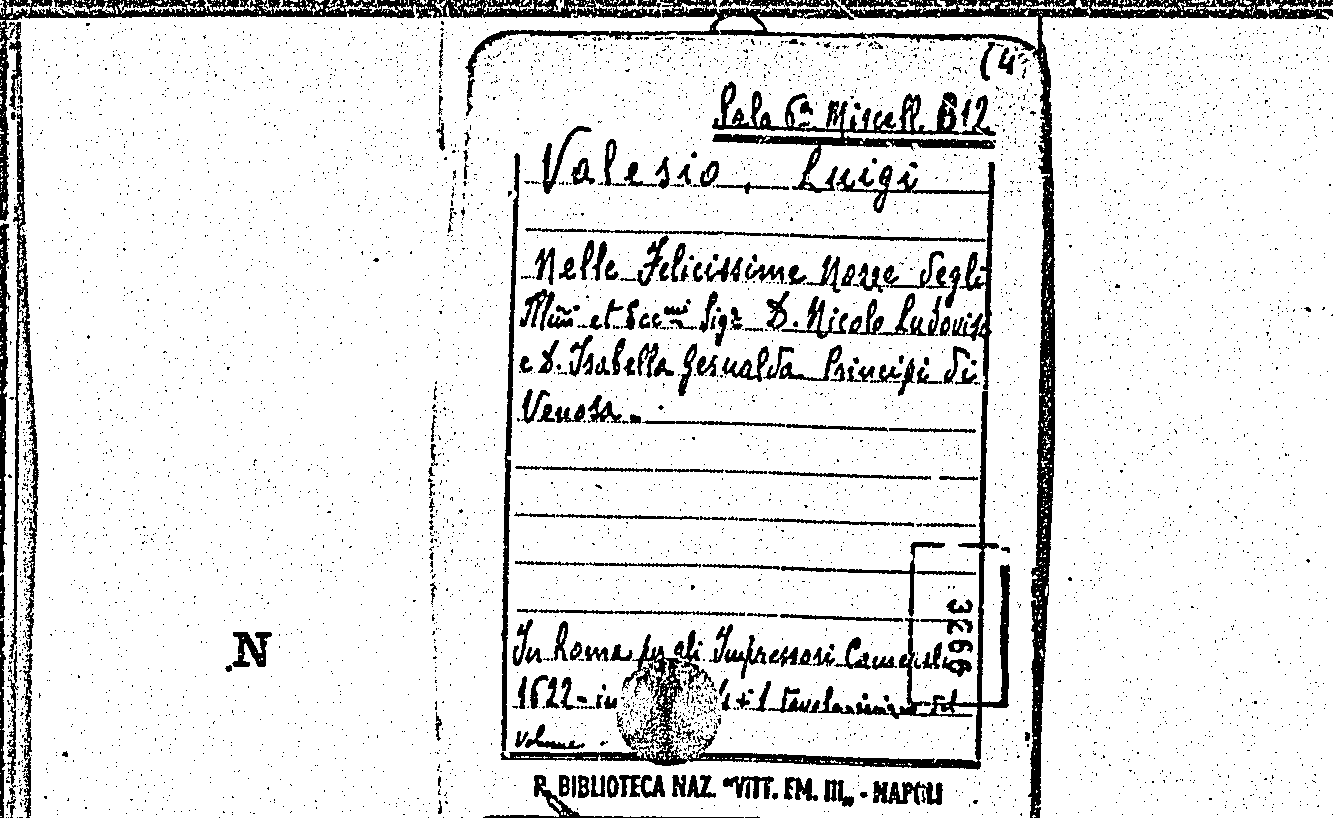 (4
Sala 6ª Miscell. B12
Valesio, Luigi
Nelle Felicissime Nozze degli
Illmi et Eccmi Sigri D. Nicolo Ludovisi
e D. Isabella Gesualda Principi di
Venosa.
3266
In Roma per gli Impressori Camerali
1622 - in + 1 tavola del
Volume.
N
R. BIBLIOTECA NAZ. "VITT. EM. III„ - NAPOLI